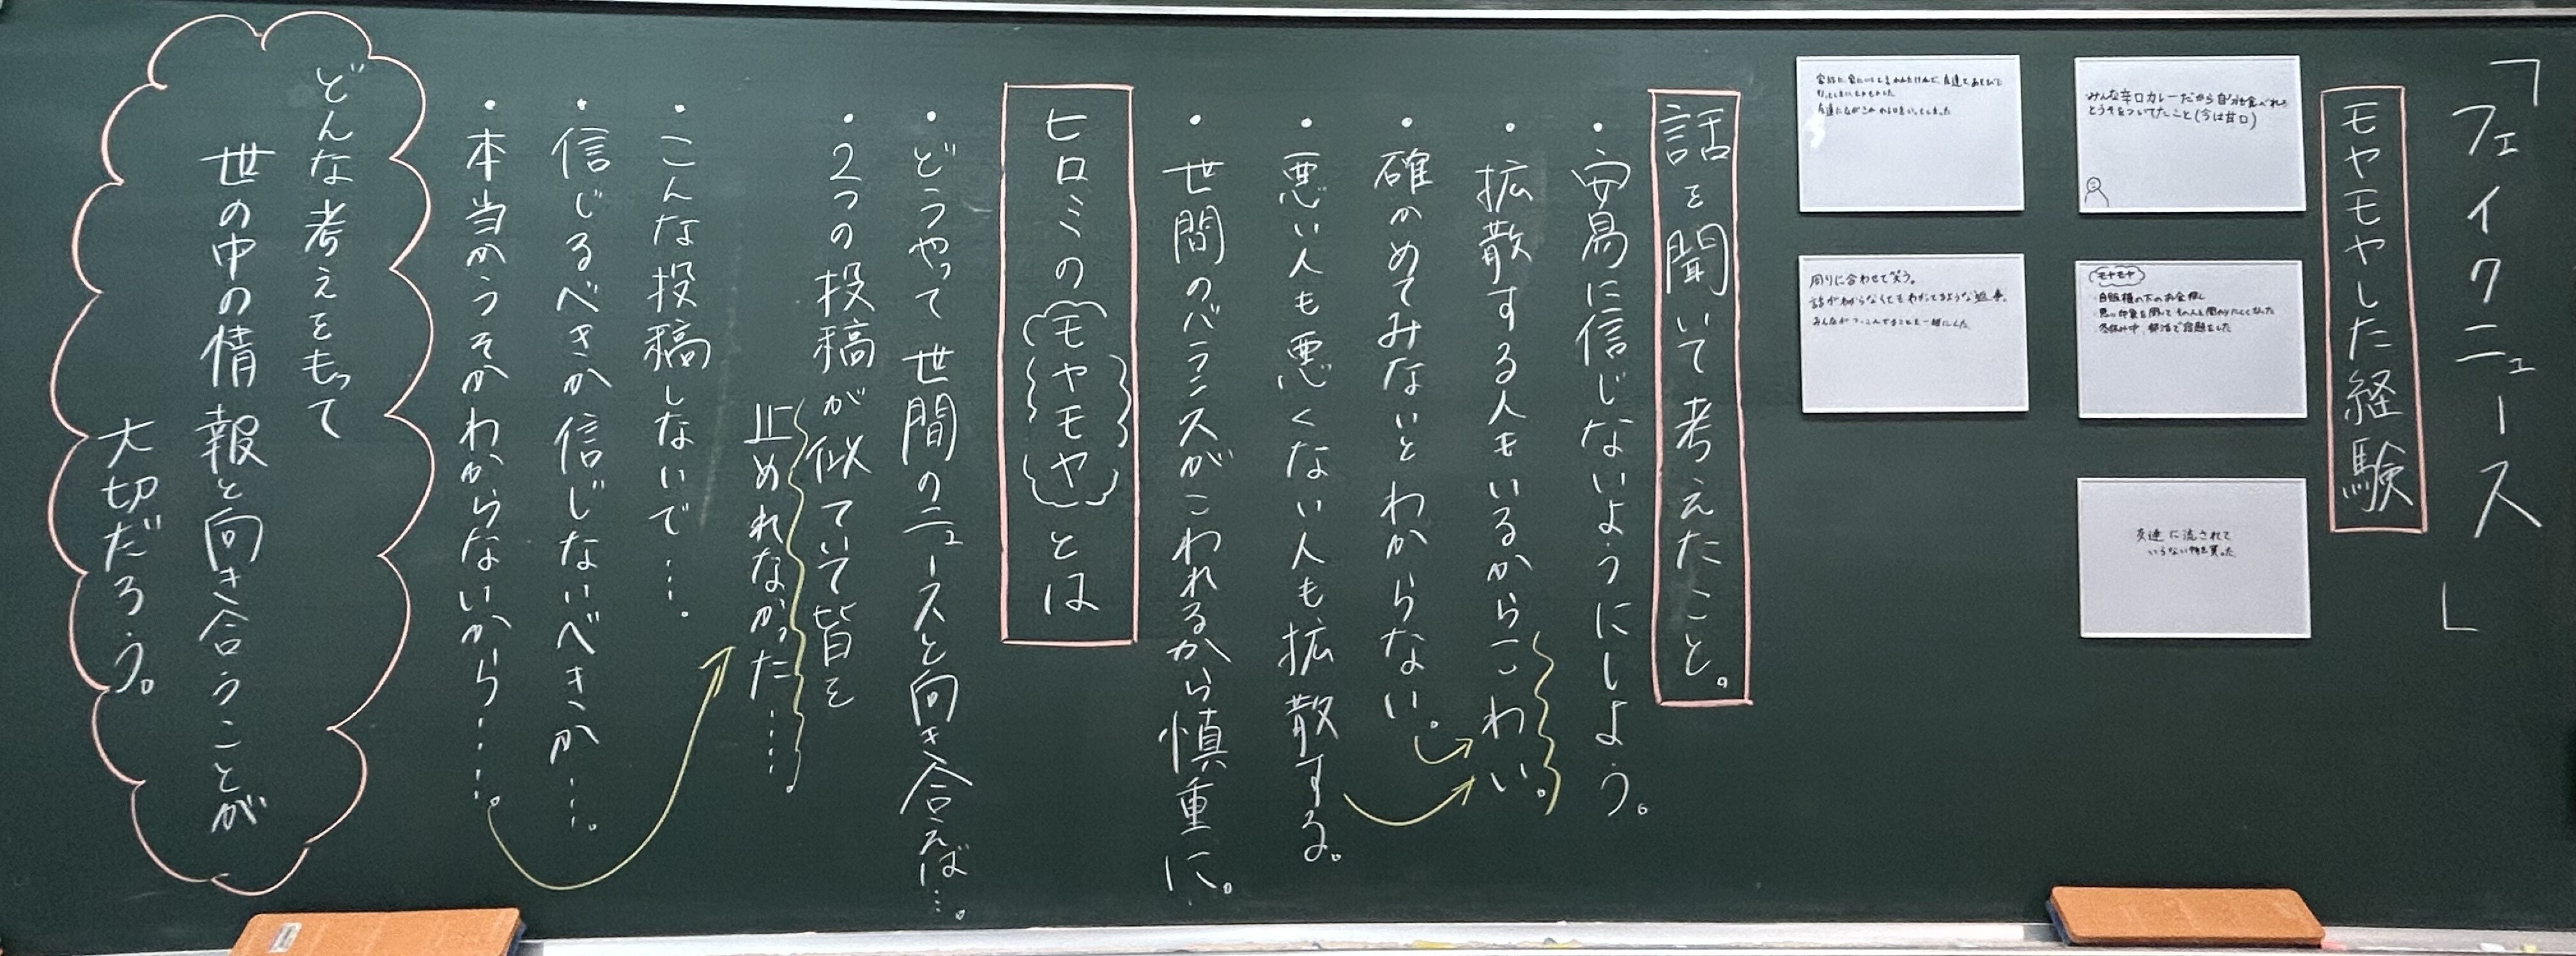 「フェイクニュース」
モヤモヤした経験
みんな辛口カレーだから自分も食べれる
とうそをついてたこと(今は甘口)
モヤモヤ
・自販機の下のお金探し
・悪い印象を聞いてその人と関わりにくくなった
冬休み中、部活で宿題をした
友達に流されて
いらない物を買った
友達とあそびに
周りに合わせて笑う。
話がわからなくてもわかってるような返事。
みんながつっこんでることを一緒にした。
話を聞いて考えたこと。
・安易に信じないようにしよう。
・拡散する人もいるからこわい。
・確かめてみないとわからない。
・悪い人も悪くない人も拡散する。
・世間のバランスがこわれるから慎重に。
ヒロミのモヤモヤとは
・どうやって世間のニュースと向き合えば…。
・2つの投稿が似ていて皆を
止めれなかった……。
・こんな投稿しないで…。
・信じるべきか信じないべきか…。
・本当かうそかわからないから……。
どんな考えをもって
世の中の情報と向き合うことが
大切だろう。